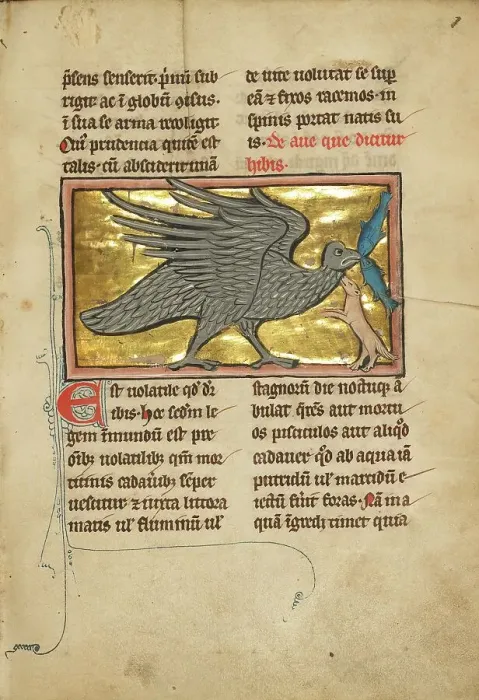 p̄sens senserit. p̄mū sub
rigit ac ī globū ↄisus.
ī sua se arma recolligit
Cuī prudencia quīte est
talis. cū absciderit unā
de uite uolutat se sup
eā ⁊ fixos racemos. in
spinis portat natis su
is. De aue que dicitur
hibis.
Est uolatile qd̄ dr̄
ibis. hec sedm̄ le
gem īmundū est pre
ōib; uolatilib; qm̄ mor
ticinis cadauīb; sēper
uescitur ⁊ iuxta littora
maris ul' fluminū ul'
stagnorū die noctuq; ā
bulat qr̄es aut mortu
os pisciculos aut aliqd
cadauer qd ab aqua iā
putridū ul' marcidū e
iectū fūit foras. Nā in a
quā īgredi timet quia